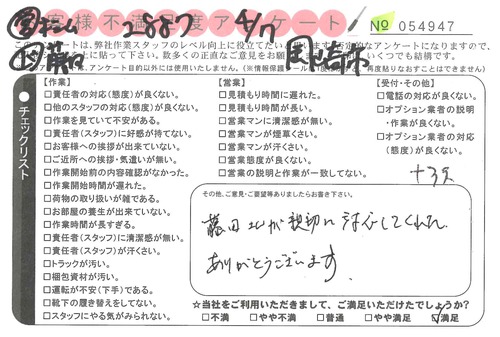 お客様不満足度アンケート
2887 4/7
№ 054947
このアンケートは、弊社作業スタッフのレベル向上に役立てたいと思います。否定的なアンケートになりますので、
に上に貼って下さい。数多くの正直なご意見をお願い いくつでも結構です。
、アンケート目的以外には使用いたしません。 再度貼りなおすことはできません)
チェックリスト
【作業】
□責任者の対応(態度)が良くない。
□他のスタッフの対応(態度)が良くない。
□作業を見ていて不安がある。
□責任者(スタッフ)に好感が持てない。
□お客様への挨拶が出来ていない。
□ご近所への挨拶・気遣いが無い。
□作業開始前の内容確認がなかった。
□作業開始時間が遅れた。
□荷物の取り扱いが雑である。
□お部屋の養生が出来ていない。
□作業時間が長すぎる。
□責任者(スタッフ)に清潔感が無い。
□責任者(スタッフ)が汗くさい。
□トラックが汚い。
□梱包資材が汚い。
□運転が不安(下手)である。
□靴下の履き替えをしてない。
□スタッフにやる気がみられない。
【営業】
□見積もり時間に遅れた。
□見積もり時間が長い。
□営業マンに清潔感が無い。
□営業マンが煙草くさい。
□営業マンが汗くさい。
□営業態度が良くない。
□営業の説明と作業が一致してない。
【受付・その他】
□電話の対応が良くない。
□オプション業者の説明
・作業が良くない。
□オプション業者の対応
(態度)が良くない。
+3点
その他、ご意見・ご要望等ありましたらお書き下さい。
藤田さんが親切に対応してくれた
ありがとうございます
☆当社をご利用いただきまして、ご満足いただけたでしょうか?
□不満 □やや不満 □普通 □やや満足 □満足